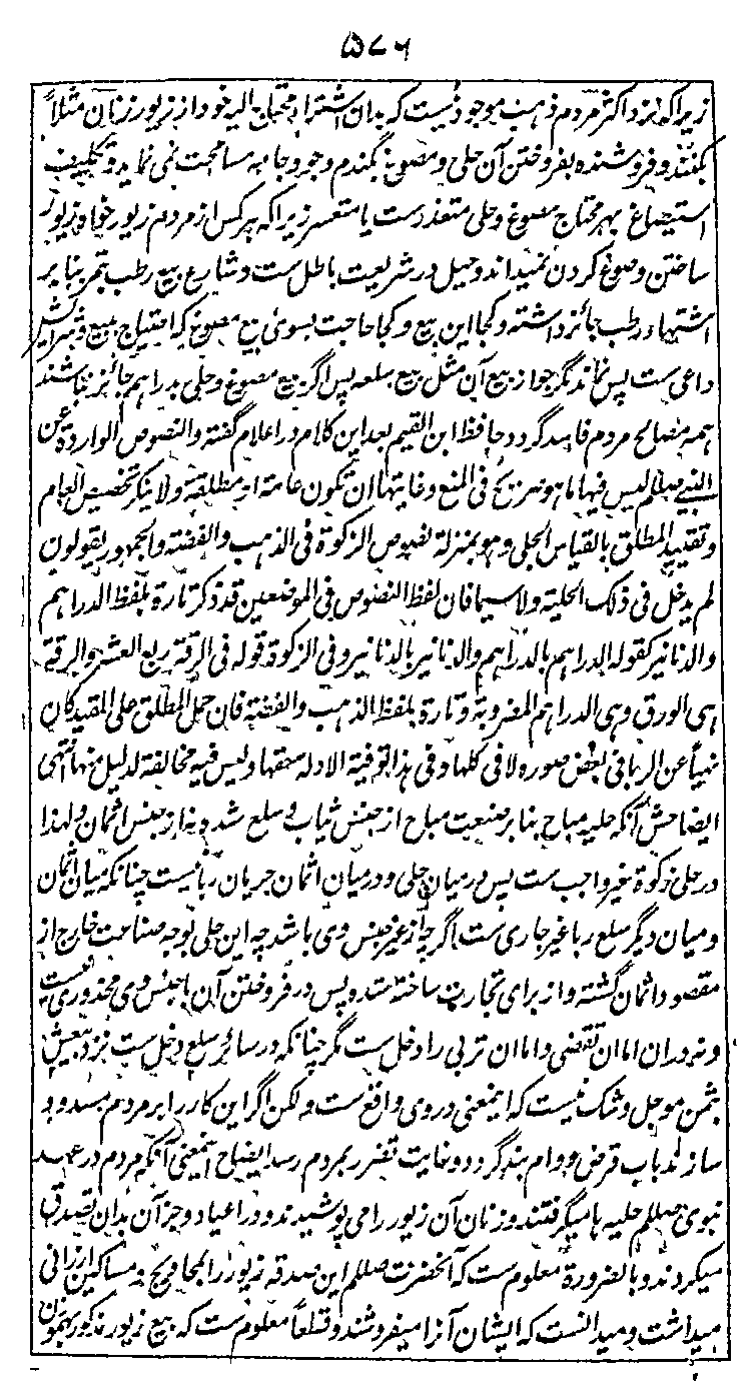 ۵۷۶
زیراکه نزد اکثر مردم ذهب موجود نیست که بدان اشتراء محتاج الیه خود از زیور زنان مثلاً
کنند و فروشنده بفروختن آن حلی و مصوغ بگندم وجو و جامه مسامحت نمی نماید و تکلیف
استصیاغ بهر محتاج مصوغ وحلی متعذرست یا متعسر زیراکه هر کس از مردم زیور خواه و زیور
ساختن و صوغ کردن نمیداند و حیل در شریعت باطل ست و شارع بیع رطب بتمر بنا بر
اشتهاء رطب جائز داشته و کجا این بیع و کجا حاجت بسوی بیع مصوغ که احتیاج ببیع و شرائش
داعی ست پس نماند مگر جواز بیع آن مثل بیع سلعه پس اگر بیع مصوغ وحلی بدراهم جائز نباشد
همه مصالح مردم فاسد گردد و حافظ ابن القیم بعد این کلام در اعلام گفته والنصوص الواردة عن
النبی صللم لیس فیها ما هو صریح فی المنع وغایتها ان تکون عامة او مطلقة ولا ینکر تخصیص العام
وتقیید المطلق بالقیاس الجلی وهو بمنزلة نصوص الزکوة فی الذهب والفضة والجمهور یقولون
لم یدخل فی ذلک الحلیة ولا سیما فان لفظ النصوص فی الموضعین قد ذکر تارة بلفظ الدراهم
والدنانیر کقوله الدراهم بالدراهم والدنانیر بالدنانیر وفی الزکوة قوله فی الرقة ربع العشر والرقة
هی الورق وهی الدراهم المضروبة وتارة بلفظ الذهب والفضة فان حمل المطلق علی المقید کان
نهیاً عن الربا فی بعض صوره لا فی کلها وفی هذا توفیة الادلة حقها ولیس فیه مخالفة لدلیل منها انتهی
ایضاحش آنکه حلیه مباح بنا بر صنعت مباح از جنس ثیاب و سلع شد و نه از جنس اثمان ولهذا
در حلی زکوة غیر واجب ست پس درمیان حلی و درمیان اثمان جریان ربا نیست چنانکه میان اثمان
و میان دیگر سلع ربا غیر جاری ست اگرچه از غیر جنس وی باشد چه این حلی بوجه صناعت خارج از
مقصود اثمان گشته و از برای تجارت ساخته شد و پس در فروختن آن با جنس وی محذوری نیست
و نه دران اما ان تقضی واما ان تربی را دخل ست مگر چنانکه در سائر سلع دخل ست نزد بیعش
بثمن موجل و شک نیست که اینمعنی در وی واقع ست ولکن اگر این کار را بر مردم مسدود
سازند باب قرض و وام بند گردد و غایت تضرر بمردم رسد ایضاح اینمعنی آنکه مردم در عهد
نبوی صللم حلیه ها میگرفتند و زنان آن زیور را می پوشیدند و در اعیاد و جز آن بدان تصدق
میکردند و بالضرورة معلوم ست که آنحضرت صللم این صدقه زیور را بمحاویج و مساکین ارزانی
میداشت و میدانست که ایشان آنرا میفروشند و قطعاً معلوم ست که بیع زیور مذکور بهموزن